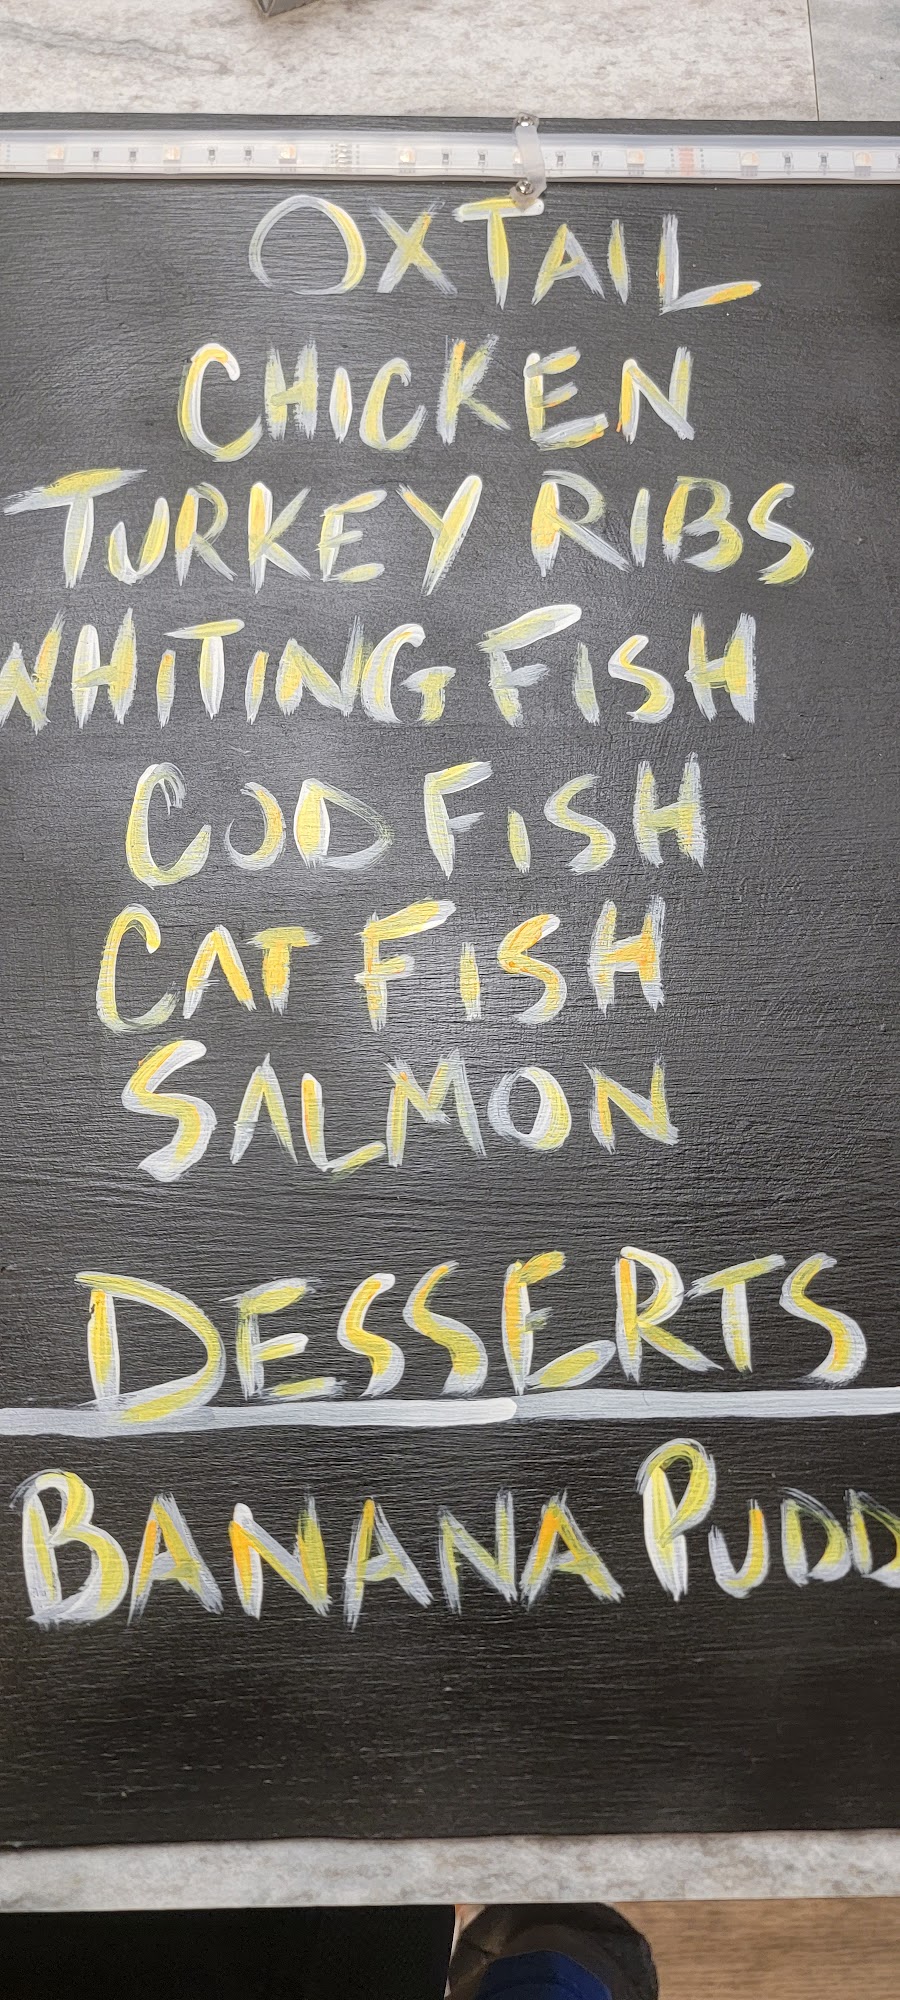 OXTAIL
CHICKEN
TURKEY RIBS
WHITING FISH
COD FISH
CAT FISH
SALMON
DESSERTS
BANANA PUDD